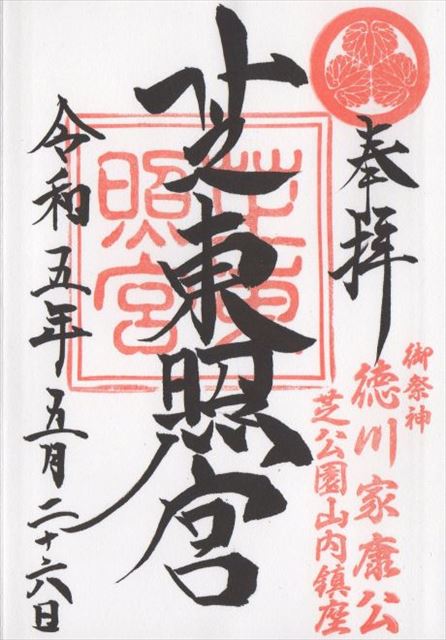 奉拝
御祭神
徳川家康公
芝公園山内鎮座
芝東照宮
芝東
照宮
令和五年五月二十六日